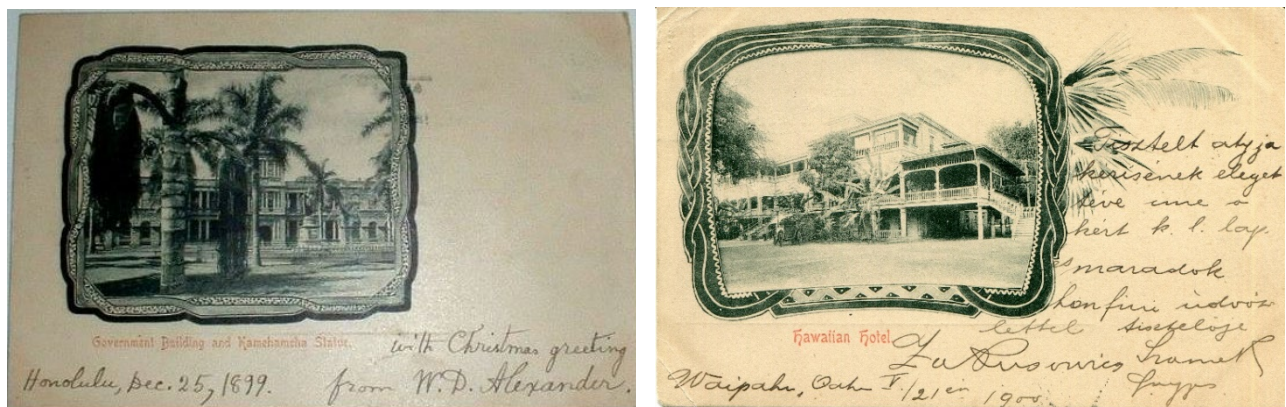 Government Building and Kamehameha Statue.
with Christmas greeting
Honolulu, Dec. 25, 1899. from W. D. Alexander.
Tisztelt atyja
kérisének eleget
téve ime a
kért k. l. lap.
maradok
honfiui üdvöz
lettel tisztelője
Hawaiian Hotel
Waipahu, Oahu V/21 én 1900